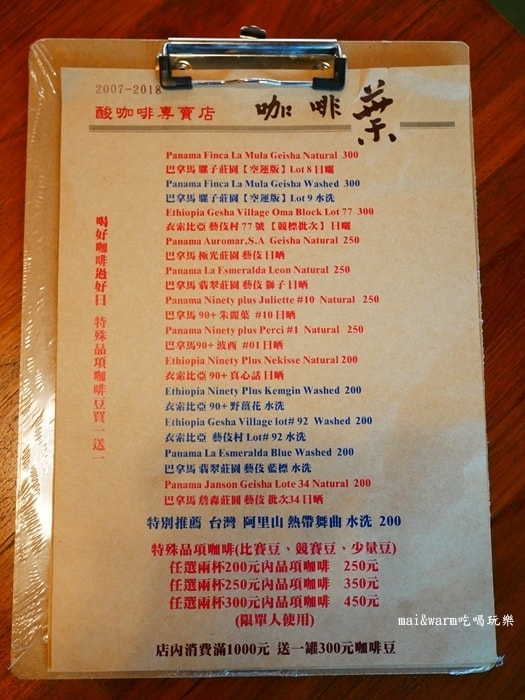 2007~2018
酸咖啡專賣店
咖啡葉
喝好咖啡過好日 特殊品項咖啡豆買一送一
Panama Finca La Mula Geisha Natural 300
巴拿馬 騾子莊園【空運版】Lot 8 日曬
Panama Finca La Mula Geisha Washed 300
巴拿馬 騾子莊園【空運版】Lot 9 水洗
Ethiopia Gesha Village Oma Block Lot 77 300
衣索比亞 藝伎村 77 號 【競標批次】日曬
Panama Auromar,S.A Geisha Natural 250
巴拿馬 極光莊園 藝伎 日晒
Panama La Esmeralda Leon Natural 250
巴拿馬 翡翠莊園 藝伎 獅子 日晒
Panama Ninety plus Juliette #10 Natural 250
巴拿馬 90+ 朱麗葉 #10 日晒
Panama Ninety plus Perci #1 Natural 250
巴拿馬90+ 波西 #01 日晒
Ethiopia Ninety Plus Nekisse Natural 200
衣索比亞 90+ 真心話 日晒
Ethiopia Ninety Plus Kemgin Washed 200
衣索比亞 90+ 野薑花 水洗
Ethiopia Gesha Village lot# 92 Washed 200
衣索比亞 藝伎村 Lot# 92 水洗
Panama La Esmeralda Blue Washed 200
巴拿馬 翡翠莊園 藝伎 藍標 水洗
Panama Janson Geisha Lote 34 Natural 200
巴拿馬 詹森莊園 藝伎 批次34 日晒
特別推薦 台灣 阿里山 熱帶舞曲 水洗 200
特殊品項咖啡(比賽豆、競賽豆、少量豆)
任選兩杯200元內品項咖啡 250元
任選兩杯250元內品項咖啡 350元
任選兩杯300元內品項咖啡 450元
(限單人使用)
店內消費滿1000元 送一罐300元咖啡豆
mai&warm吃喝玩樂